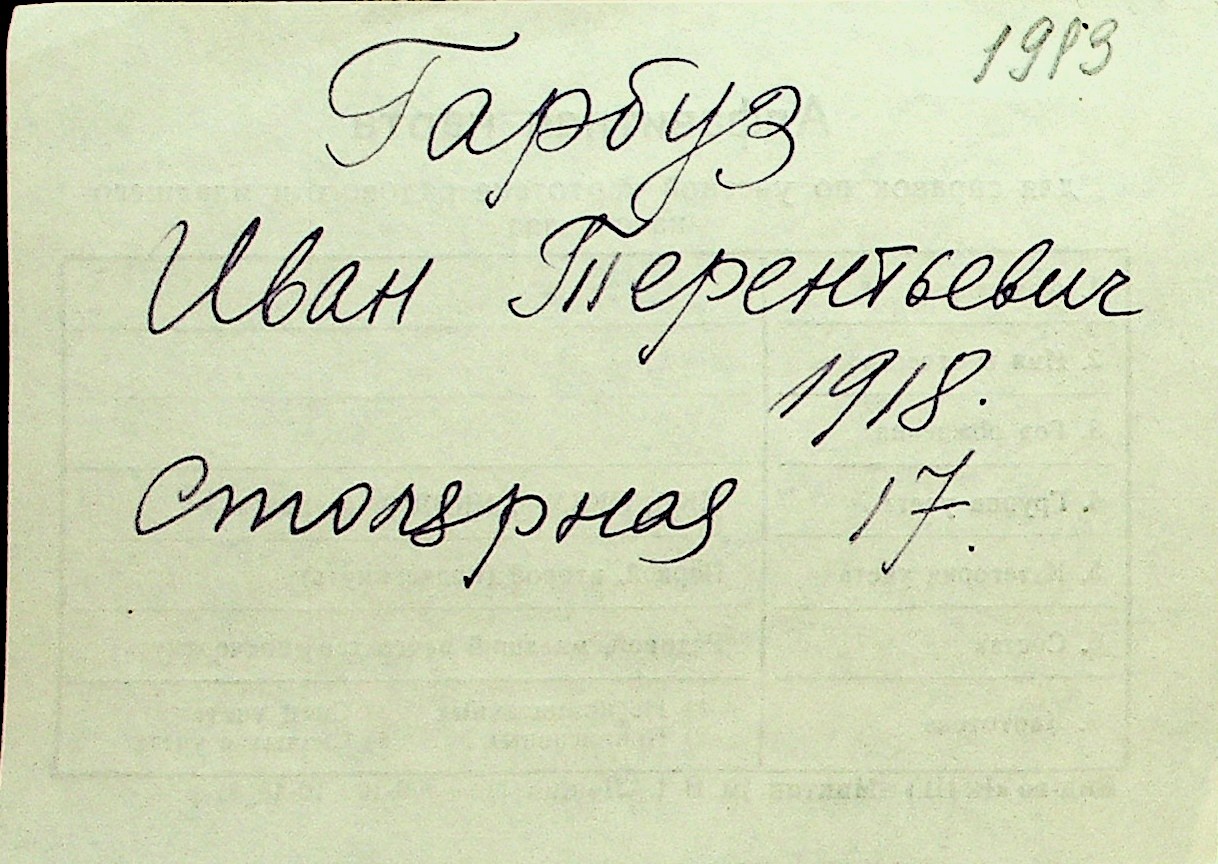 1983
Гарбуз
Иван Терентьевич
1918.
Столярная 17.